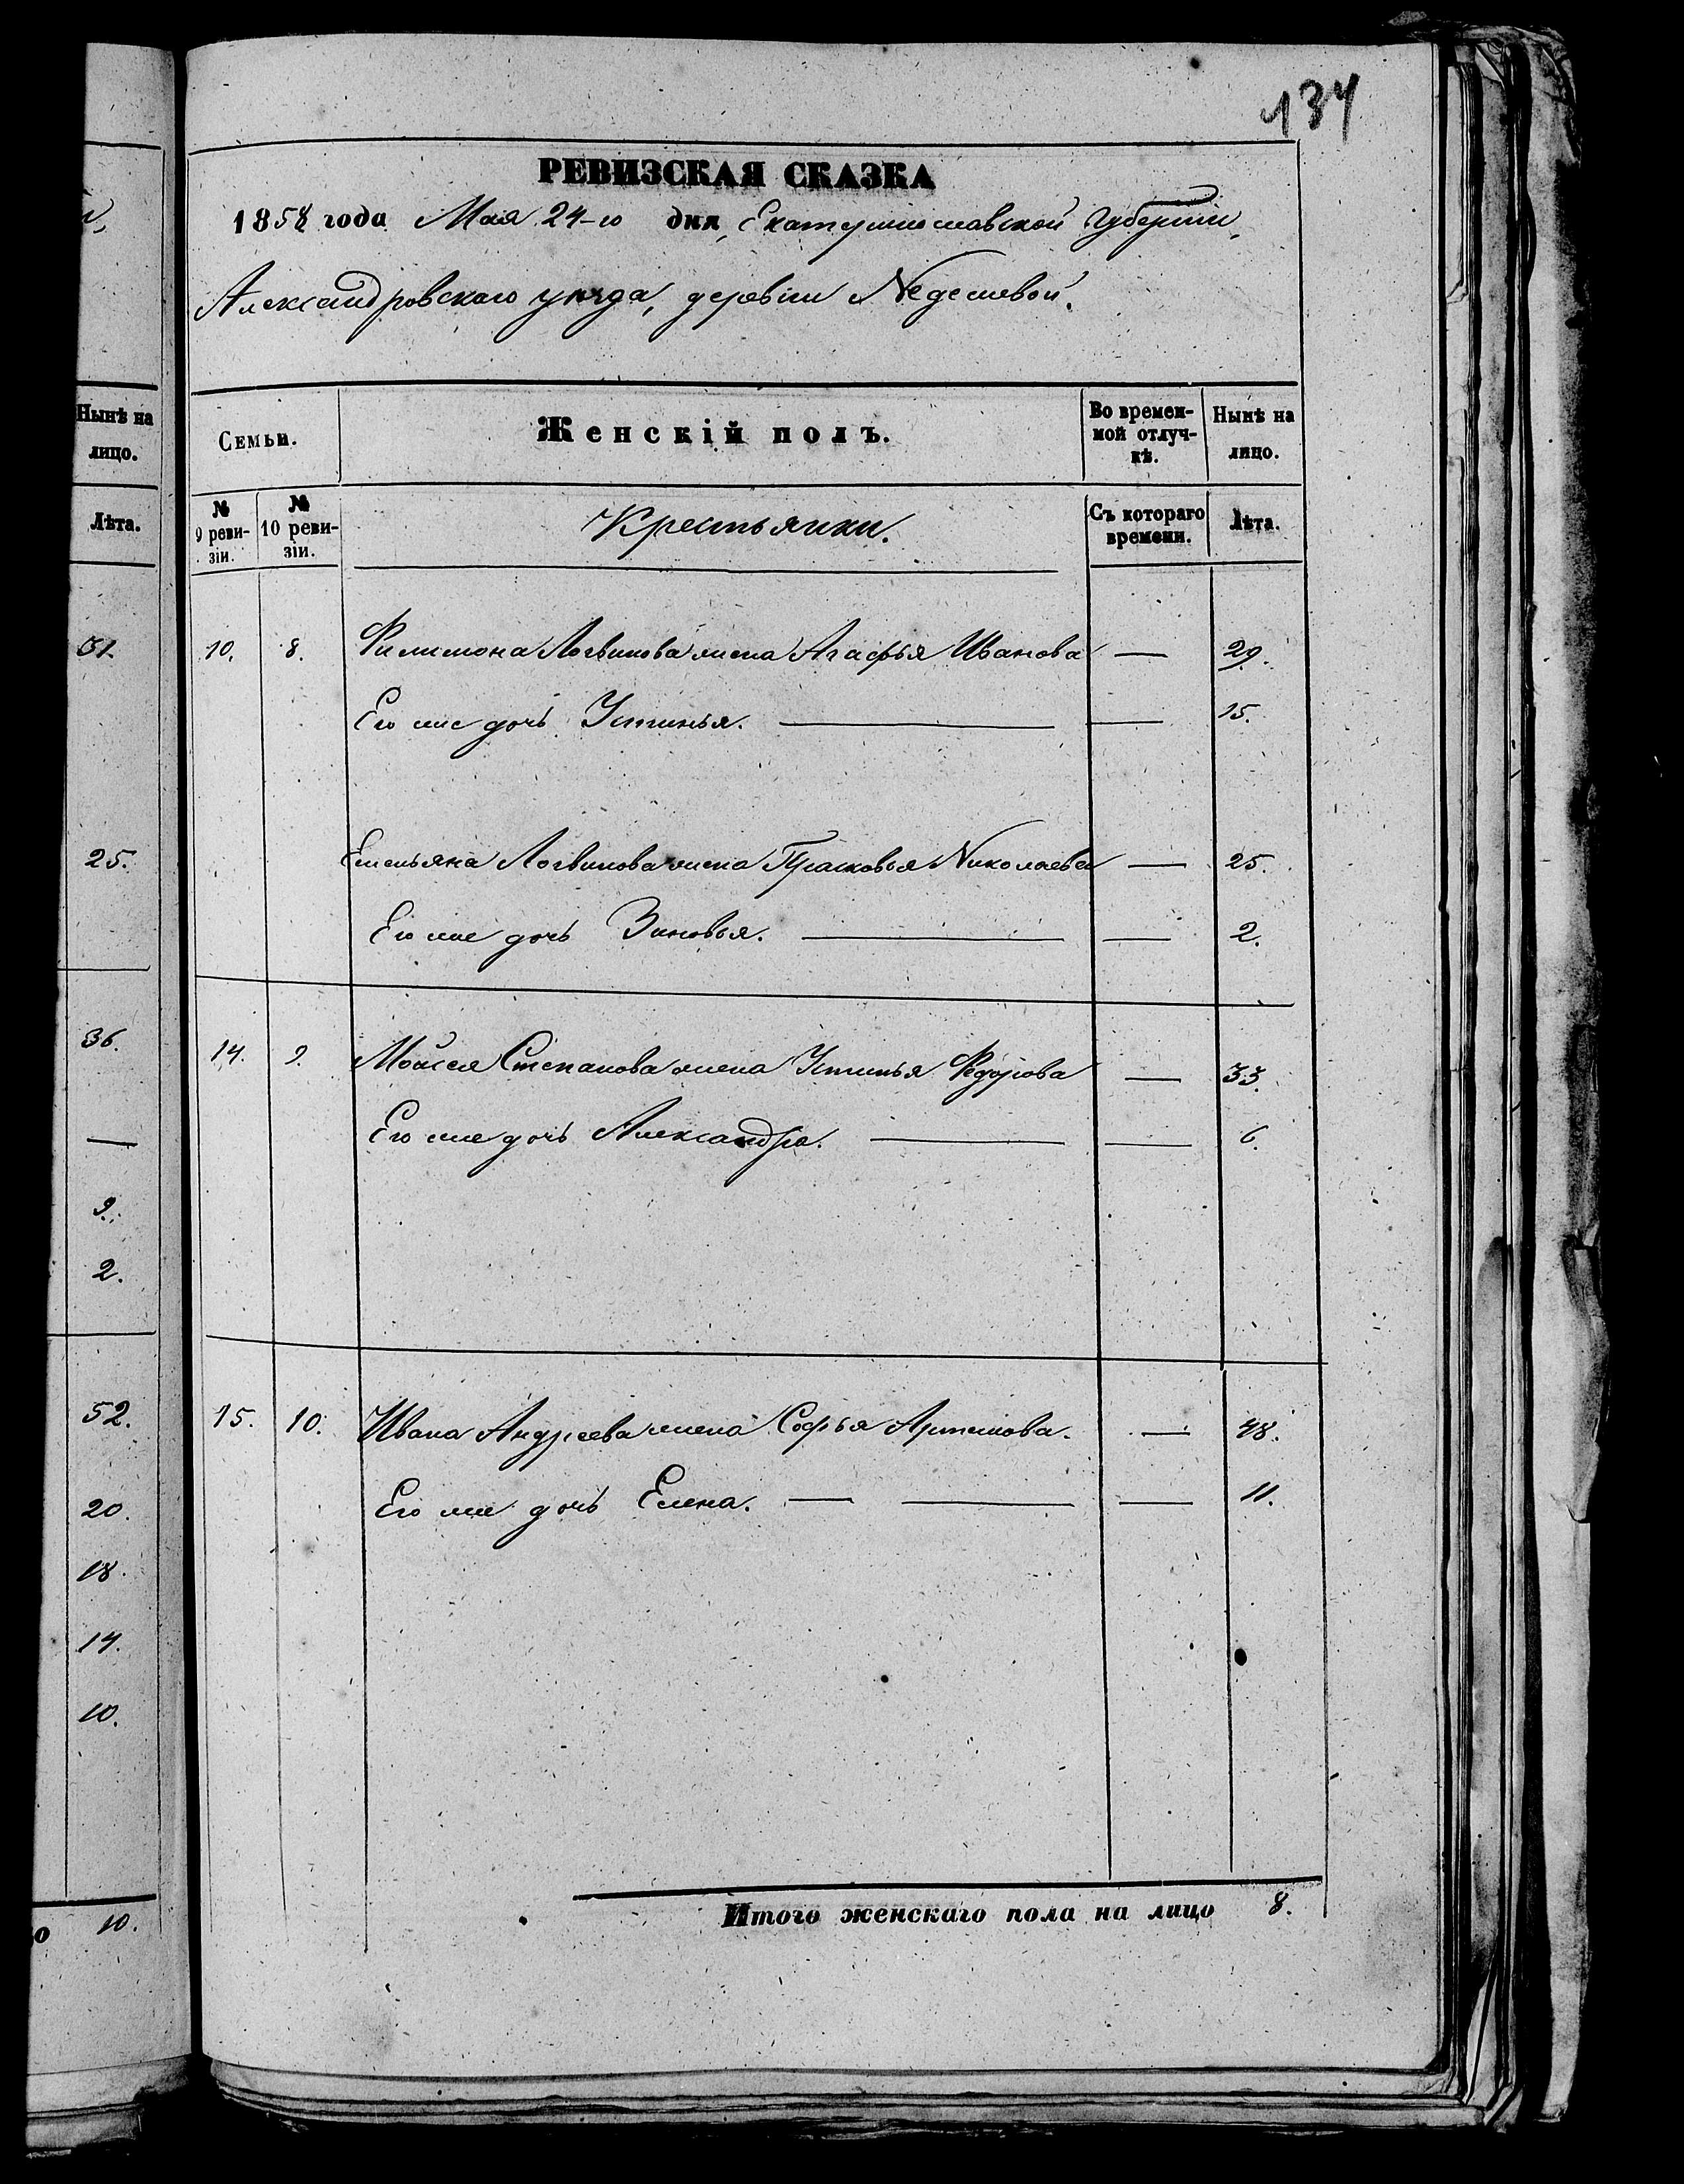 134
РЕВИЗСКАЯ СКАЗКА
1858 года Мая 24-го дня, Екатеринославской Губерніи,
Александровскаго уѣзда, деревни
Нынѣ на лицо.
Лѣта.
31.
25.
36.
—
9.
2.
52.
20.
18.
14.
10.
10.
Семьи.
Женскій полъ.
Во времен-
ной отлуч-
кѣ.
Нынѣ на
лицо.
№
9 реви-
зіи.
№
10 реви-
зіи.
Крестьянки.
Съ котораго
времени.
Лѣта.
10. 8. Филимона Логвинова жена Агафья Иванова — 29.
Его же дочь Устинья. — — 15.
Емельяна Логвинова жена Прасковья Николаева — 25.
Его же дочь Зиновья. — — 2.
14. 9. Мойсея Степанова жена Устинья Федорова — 33.
Его же дочь Александра. — — 6.
15. 10. Ивана Андреева жена Софья Артемова. — 48.
Его же дочь Елена. — — — 11.
Итого женскаго пола на лицо 8.